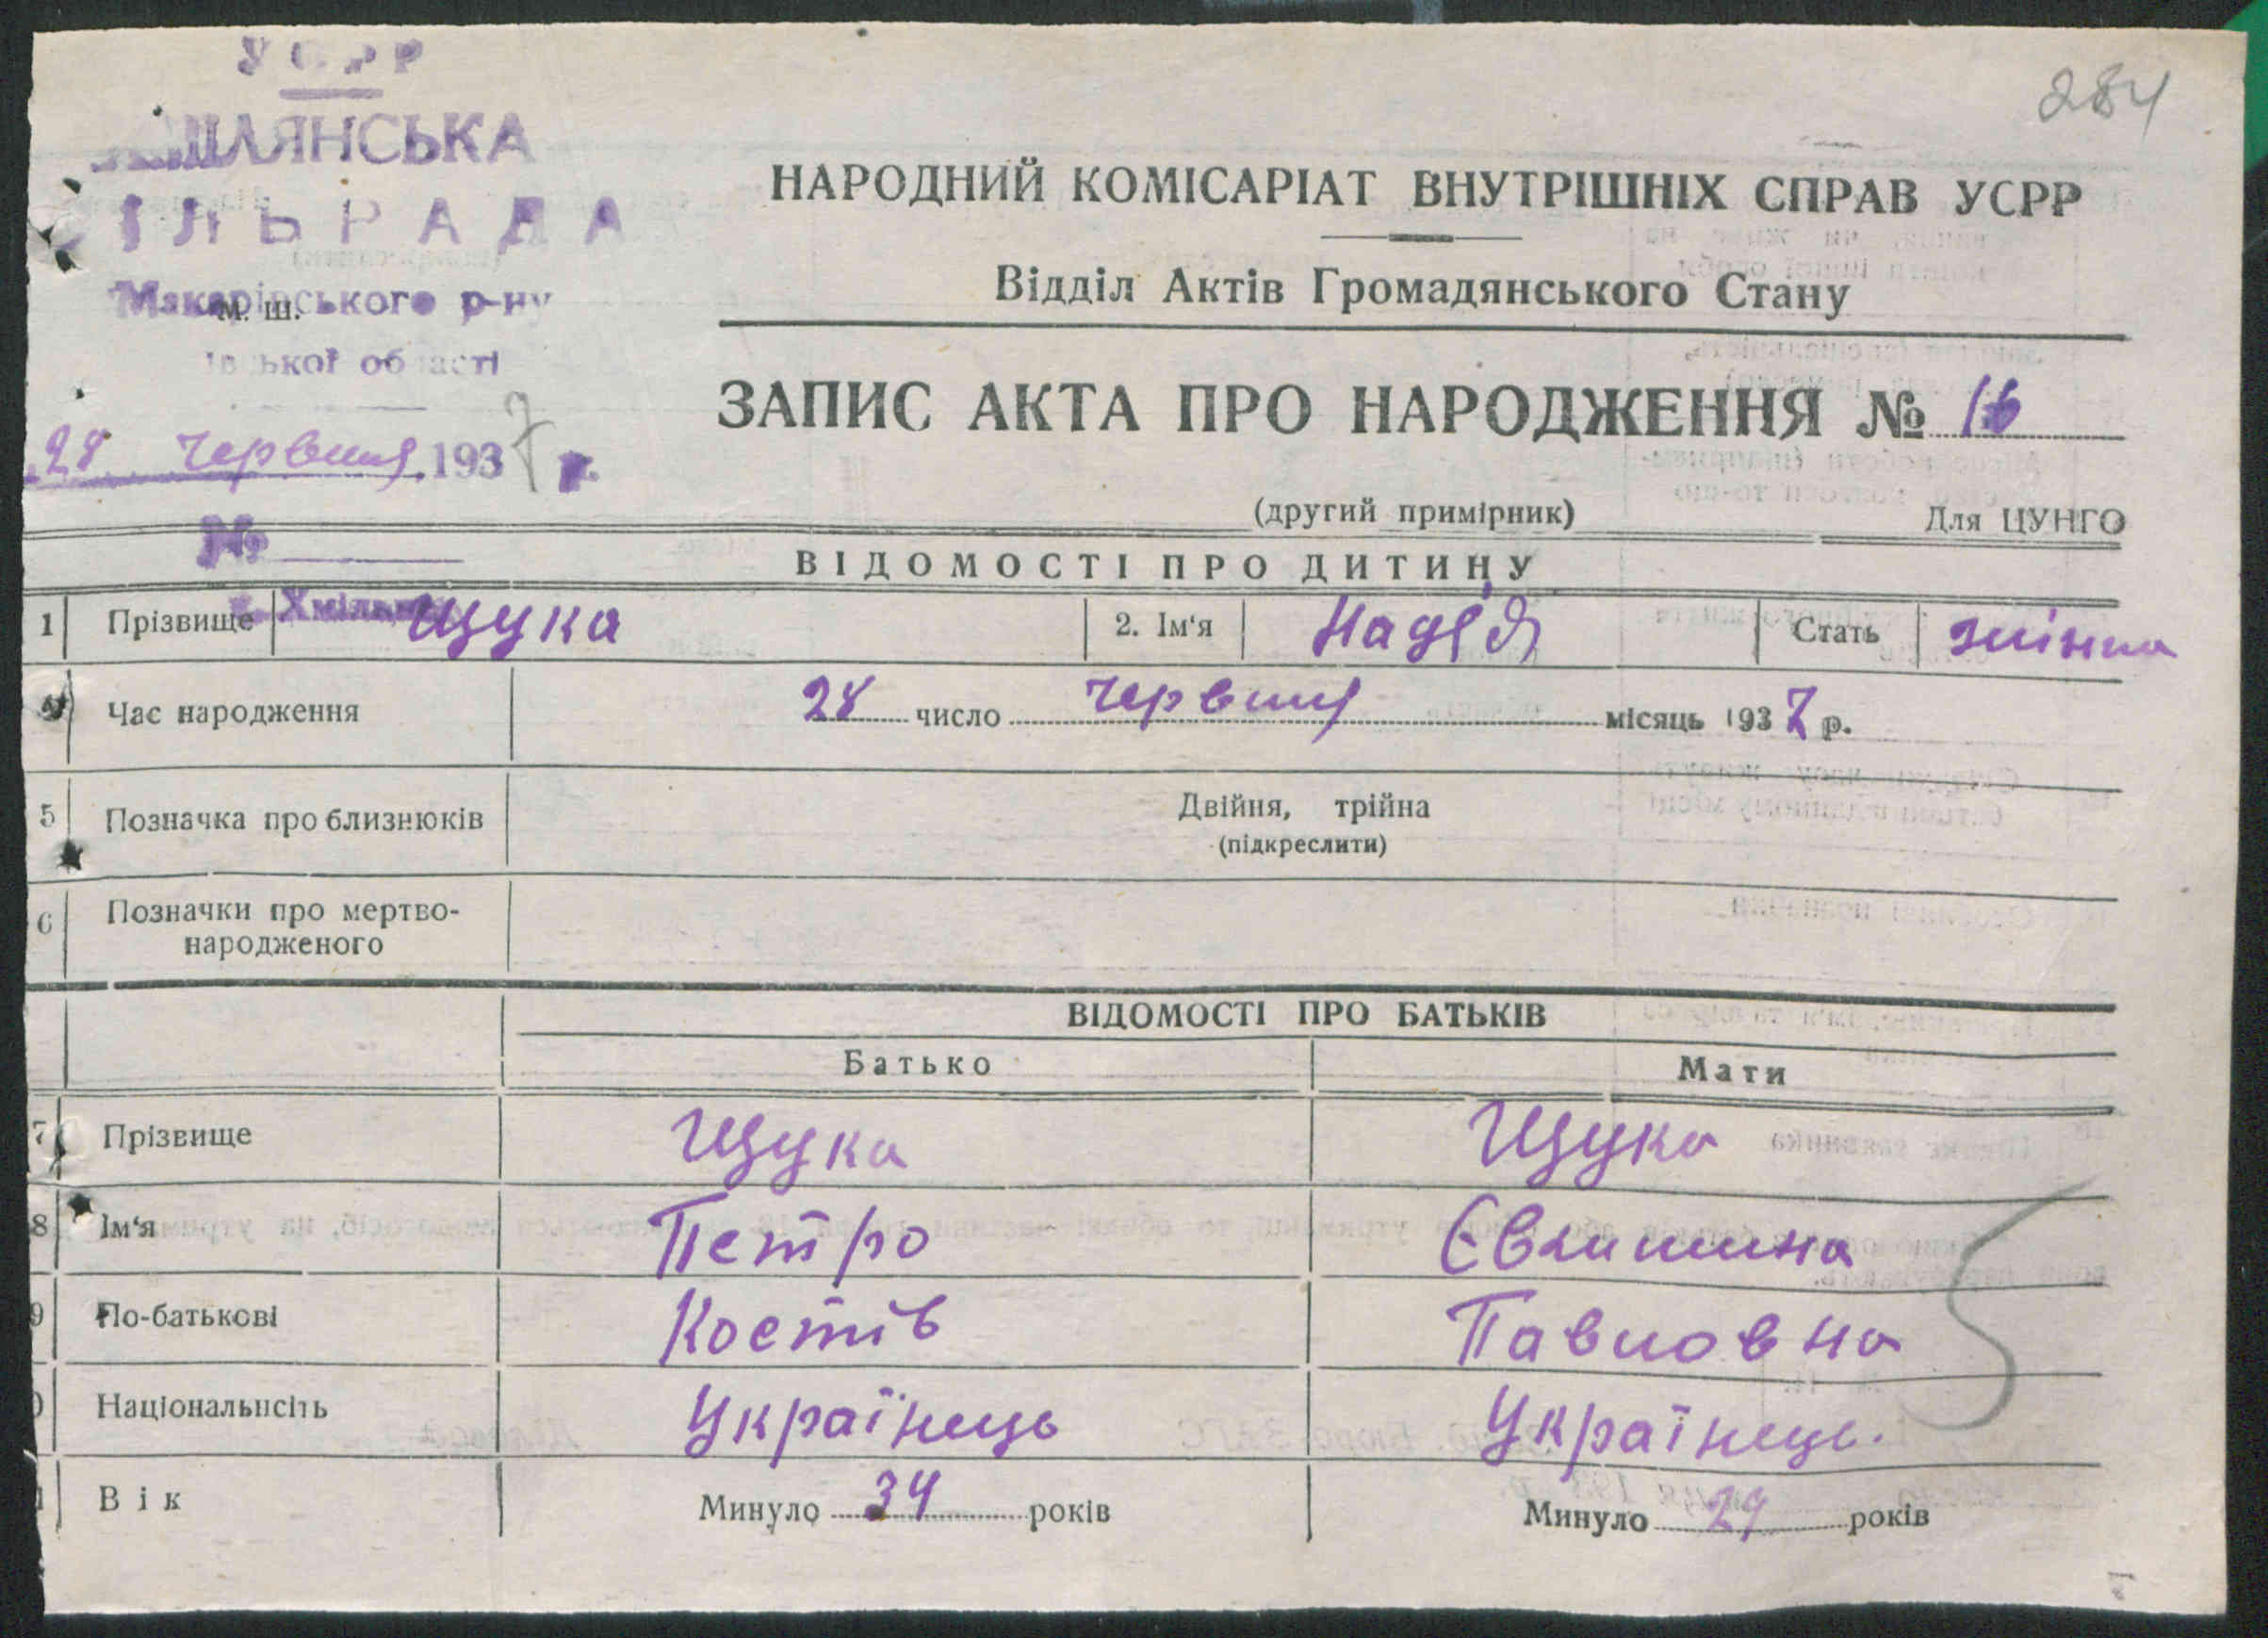 УСРР
284
ІЛЬРАДА
Макарівського р-ну
М. Ш.
НАРОДНИЙ КОМІСАРІАТ ВНУТРІШНІХ СПРАВ УСРР
Відділ Актів Громадянського Стану
28 червня 1937 р.
ЗАПИС АКТА ПРО НАРОДЖЕННЯ № 16
(другий примірник) Для ЦУНГО
№
ВІДОМОСТІ ПРО ДИТИНУ
1 Прізвище Щука 2. Ім'я Надія Стать жіноча
Час народження 28 число червня місяць 1937 р.
5 Позначка про близнюків Двійня, трійна
(підкреслити)
6 Позначки про мертво-
народженого
ВІДОМОСТІ ПРО БАТЬКІВ
Батько Мати
7 Прізвище Щука Щука
8 Ім'я Петро Євлишина
9 По-батькові Костів Павловна
Національність Українець Українець.
Вік Минуло 34 років Минуло 29 років